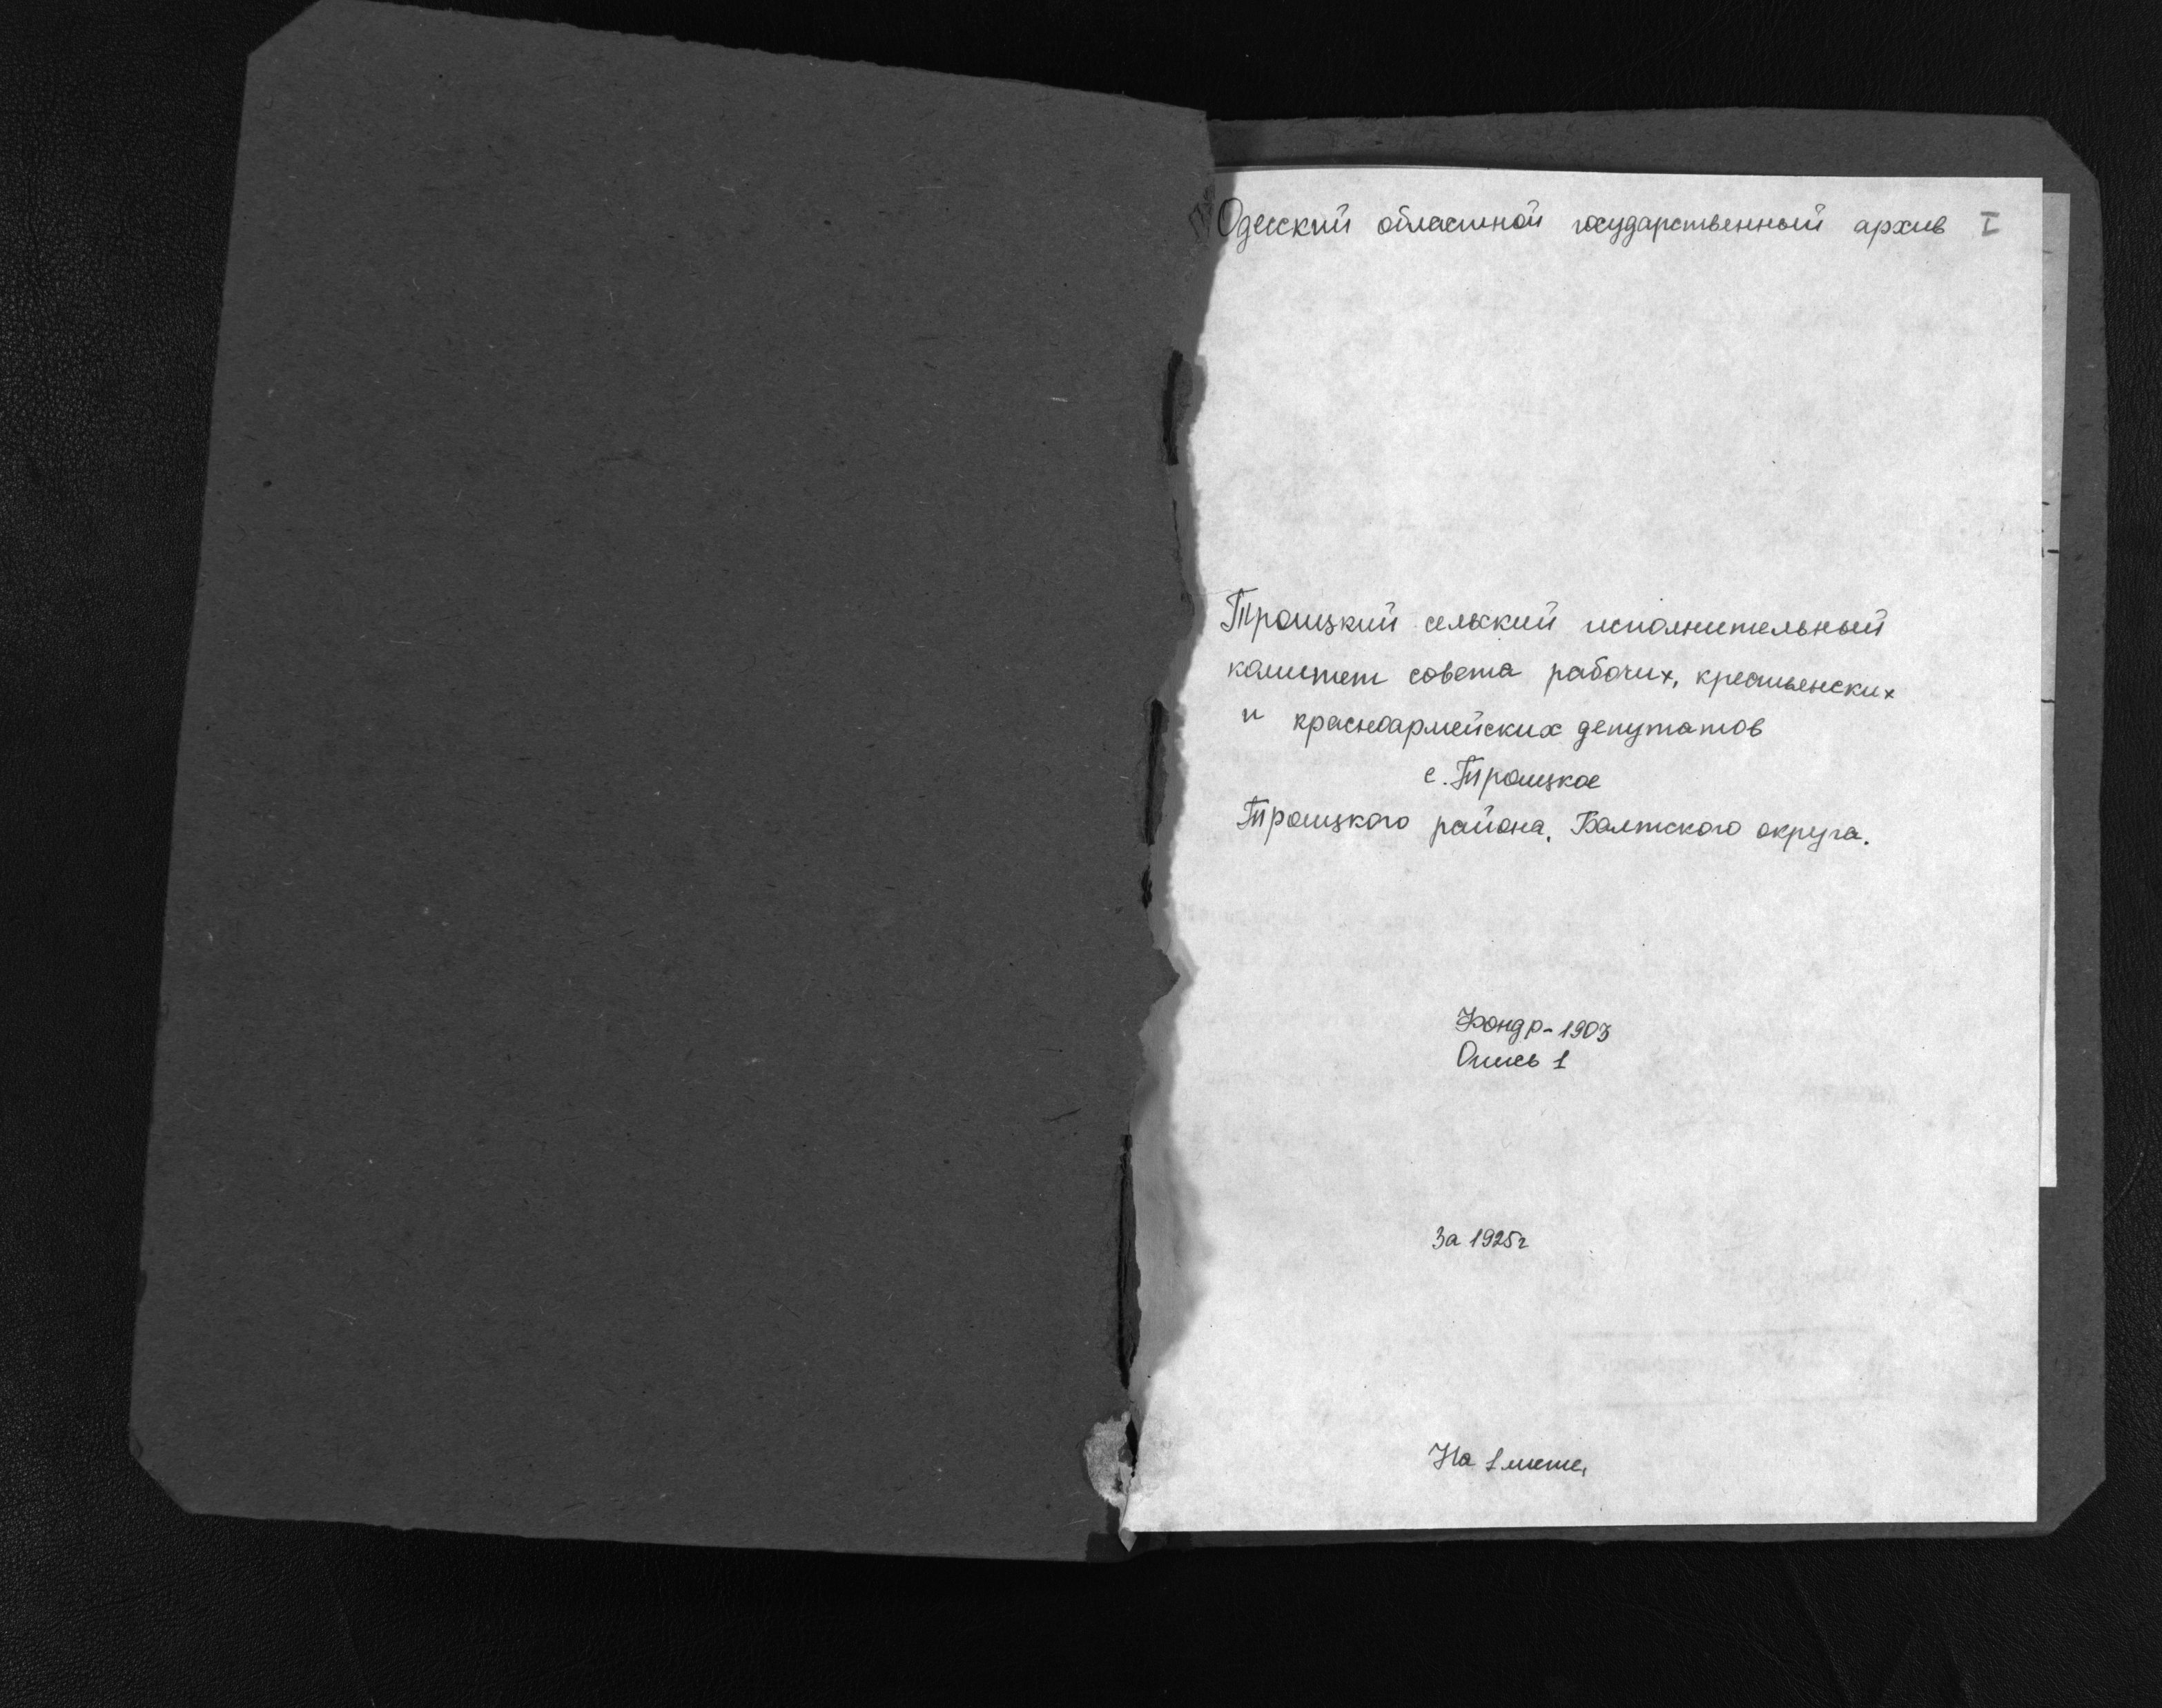 Одесский областной государственный архив I
Троицкий сельский исполнительный
комитет совета рабочих, крестьянских
и красноармейских депутатов
с. Троицкое
Троицкого района, Балтского округа.
Фонд р-1903
Опись 1
За 1925г
На 1 листе,